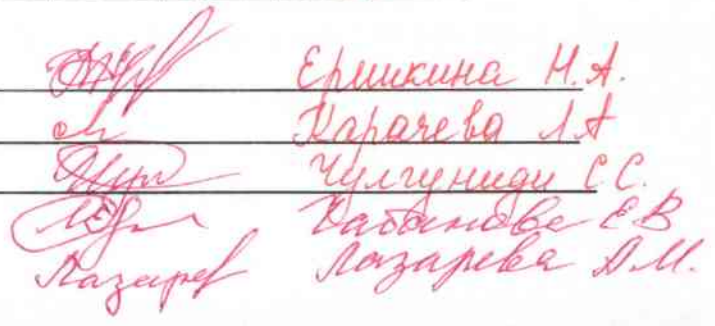 Ермикина Н.А.
Карачева Л А
Чулгуниди С.С.
Кабанова Е В
Лазарев Лазарева А.М.